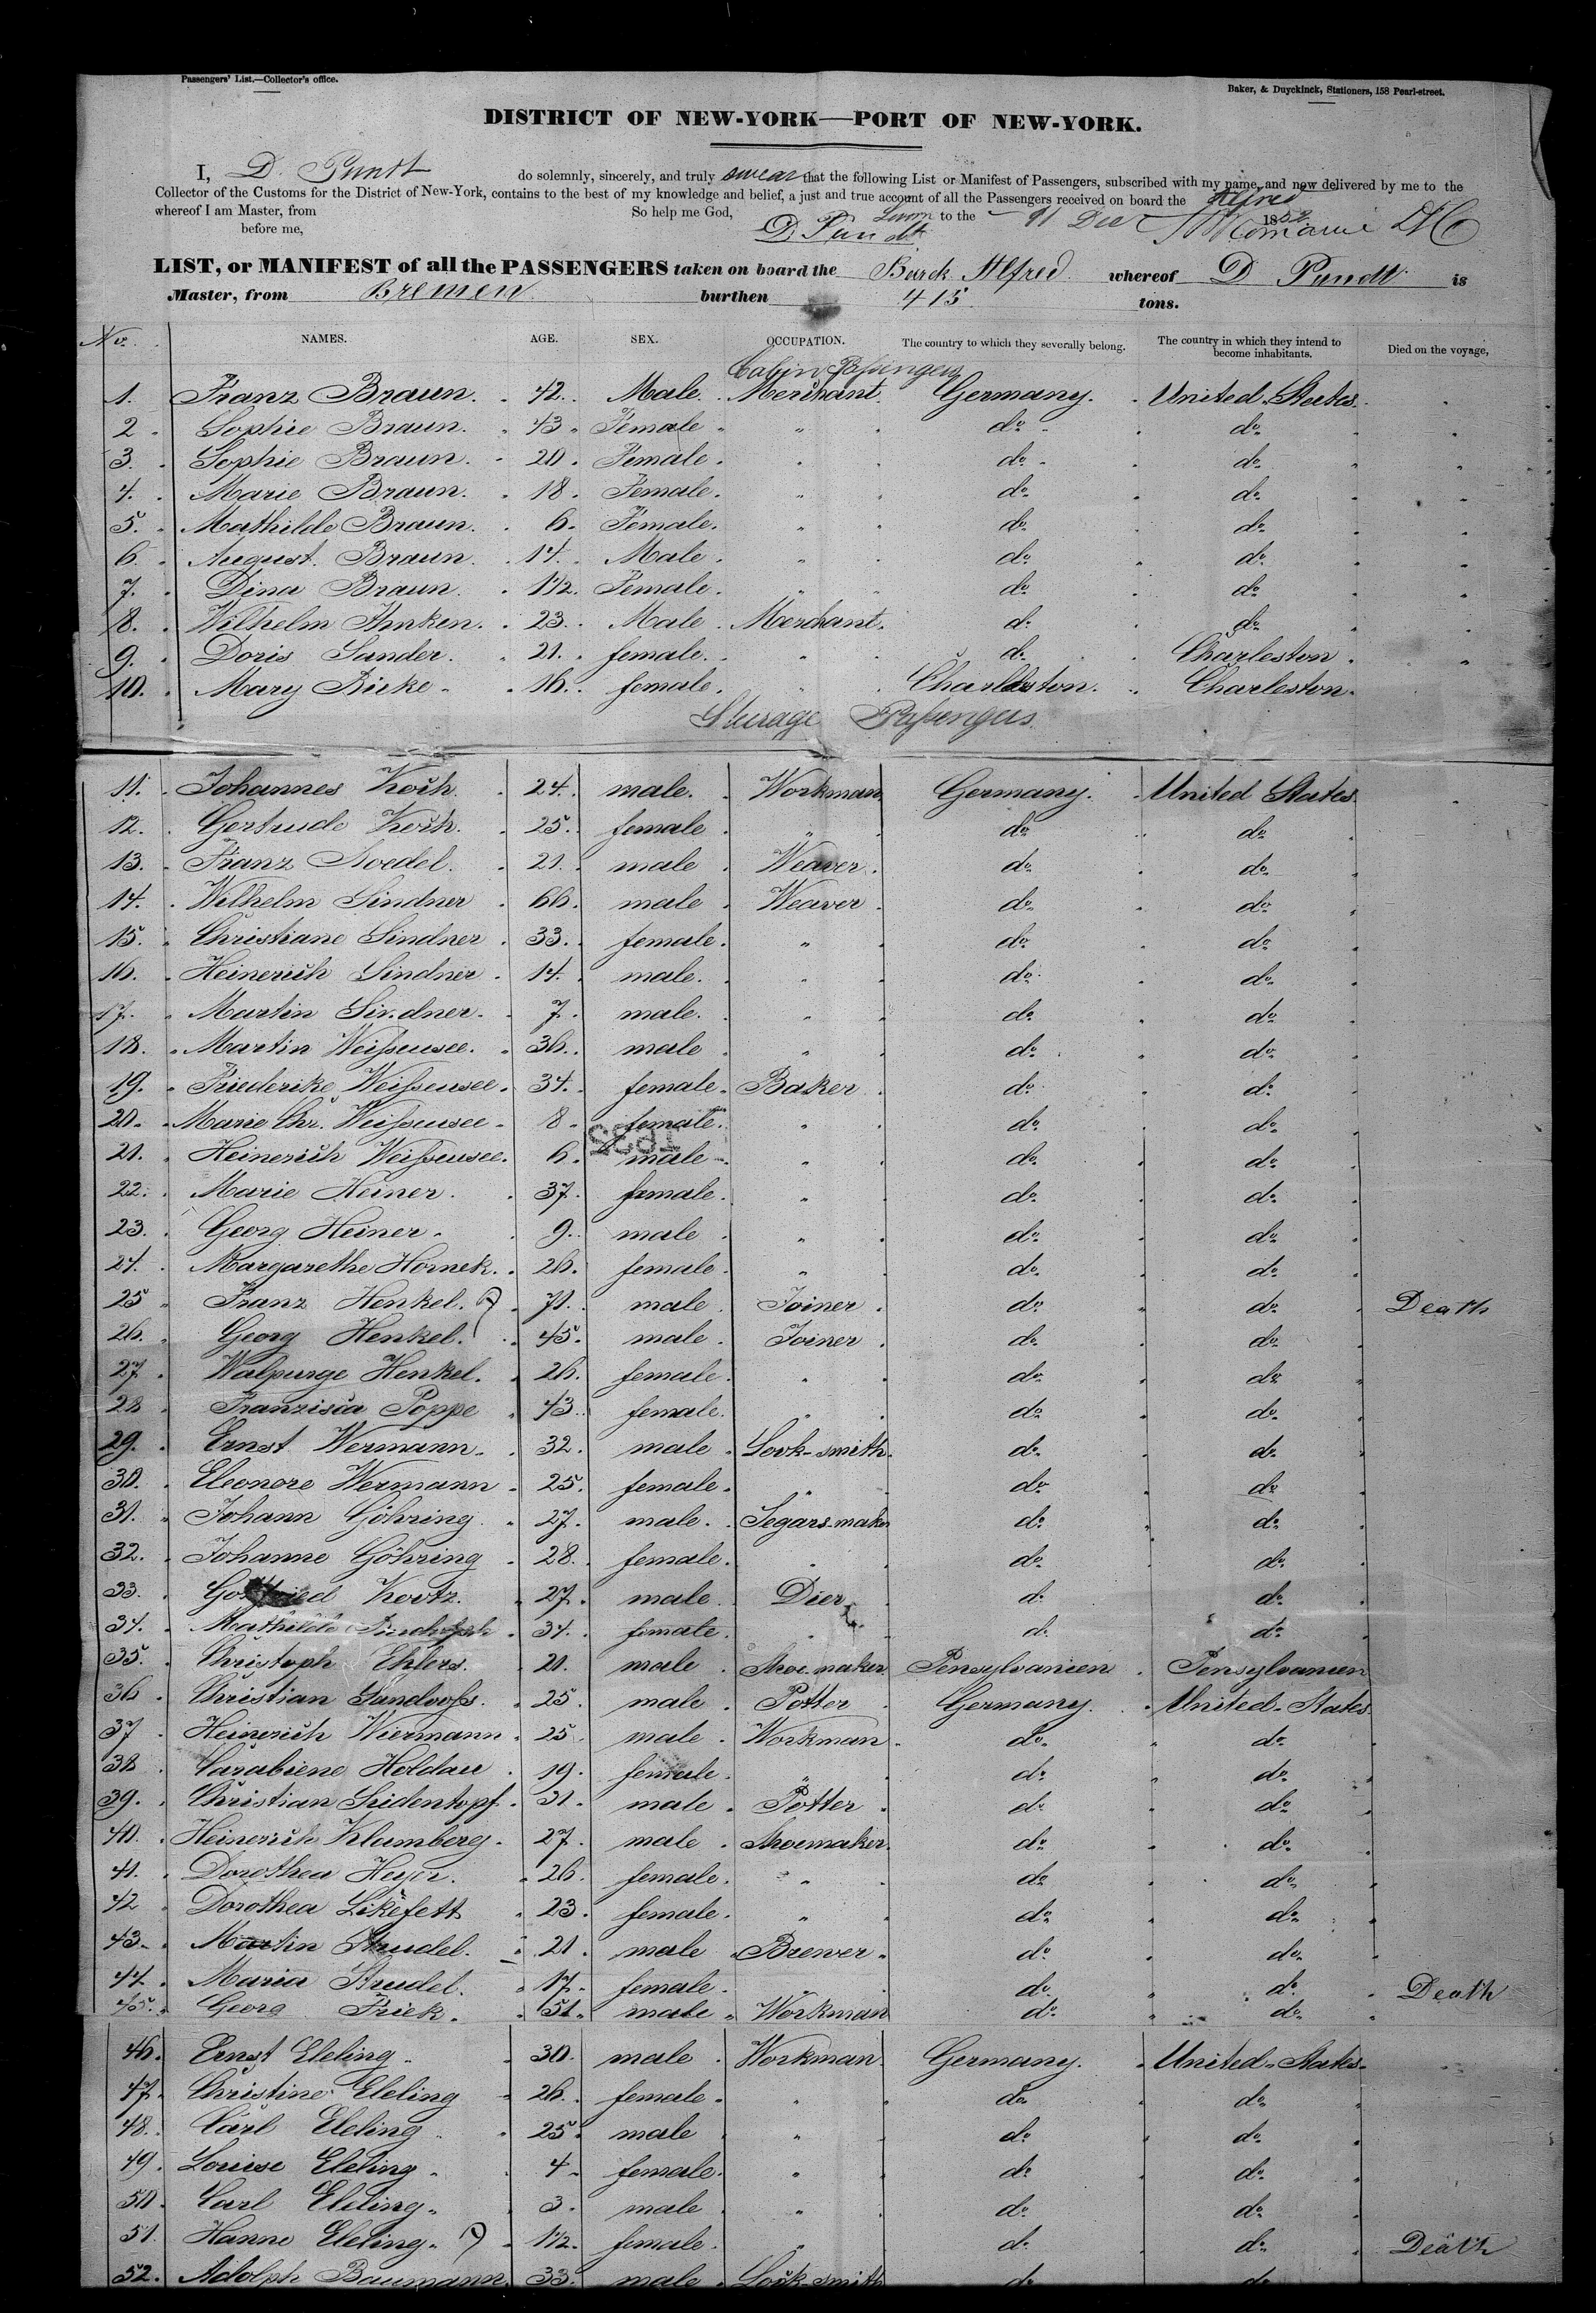 Passengers' List.—Collector's office.
Baker, & Duyckinck, Stationers, 158 Pearl-street.
DISTRICT OF NEW-YORK—PORT OF NEW-YORK.
I, D. Pundt do solemnly, sincerely, and truly swear that the following List or Manifest of Passengers, subscribed with my name, and now delivered by me to the
Collector of the Customs for the District of New-York, contains to the best of my knowledge and belief, a just and true account of all the Passengers received on board the Alfred
whereof I am Master, from So help me God,
Sworn to the 11 Dec 1852
before me, D Pundt
LIST, or MANIFEST of all the PASSENGERS taken on board the Barck Alfred whereof D Pundt is
Master, from Bremen burthen 415 tons.
No. NAMES. AGE. SEX. OCCUPATION. The country to which they severally belong. The country in which they intend to become inhabitants. Died on the voyage,
Cabin Passengers
1. Franz Braun. 42. Male. Merchant. Germany. United States.
2 Sophie Braun. 43 Female " do do
3. Sophie Braun. 20. Female. " do do
4. Marie Braun. 18. Female. " do do
5. Mathilde Braun. 6. Female. " do do
6. August. Braun. 14. Male. " do do
7. Dina Braun. 1 1/2. Female. " do do
8. Wilhelm Ahnken. 23. Male. Merchant. do do
9. Doris Sander. 21. female. " do Charleston.
10. Mary Bicke 16. female. " Charleston. Charleston.
Steerage Passengers.
11. Johannes Koch. 24. male. Workman Germany. United States
12. Gertrude Koch. 25. female. " do do
13. Franz Noedel. 21. male Weaver. do do
14. Wilhelm Lindner 66. male Weaver. do do
15. Christiane Lindner 33. female. " do do
16. Heinerich Lindner 14. male. " do do
17. Martin Lindner. 7. male. " do do
18. Martin Weissensee. 36. male " do do
19. Friederike Weissensee. 34. female. Baker do do
20. Marie Chr. Weissensee 8 female. " do do
21. Heinerich Weissensee. 6. male " do do
22. Marie Heiner. 37. female. " do do
23. Georg Heiner. 9. male " do do
24. Margarethe Hornek. 26. female. " do do
25 Franz Henkel. 71. male. Joiner. do do Death
26. Georg Henkel. 45. male. Joiner. do do
27 Walpurge Henkel. 26. female. " do do
28 Franzisca Poppe 43. female. " do do
29. Ernst Wermann. 32. male Lock-smith. do do
30. Eleonore Wermann 25. female. " do do
31. Johann Göhring. 27. male. Segars-maker do do
32. Johanne Göhring 28. female. " do do
33. Gottfried Kortz. 27. male. Dier do do
34. Mathilde 34. female. " do do
35. Christoph Ehlers. 21. male Shoemaker Pensylvanien Pensylvanien
36 Christian Sandvoss. 25. male Potter Germany. United States
37 Heinerich Wiermann 25 male Workman do do
38 Carabiene Holdau 19. female. " do do
39. Christian Seidentopf. 31. male. Potter do do
40. Heinerich Klumberg. 27. male Shoemaker. do do
41. Dorothea Heyer. 26. female. " do do
42 Dorothea Likefett 23. female. " do do
43. Martin Strudel. 21. male Brewer. do do
44. Maria Strudel. 17. female. " do do Death
45. Georg Friek. 51. male Workman do do
46. Ernst Eleling. 30. male Workman. Germany. United States.
47. Christine Eleling 26. female. " do do
48. Carl Eleling 25. male " do do
49. Louise Eleling. 4. female. " do do
50. Carl Eleling. 3. male " do do
51. Hanne Eleling. 1 1/2. female. " do do Death
52. Adolph Baumann. 33. male. Lock-smith do do